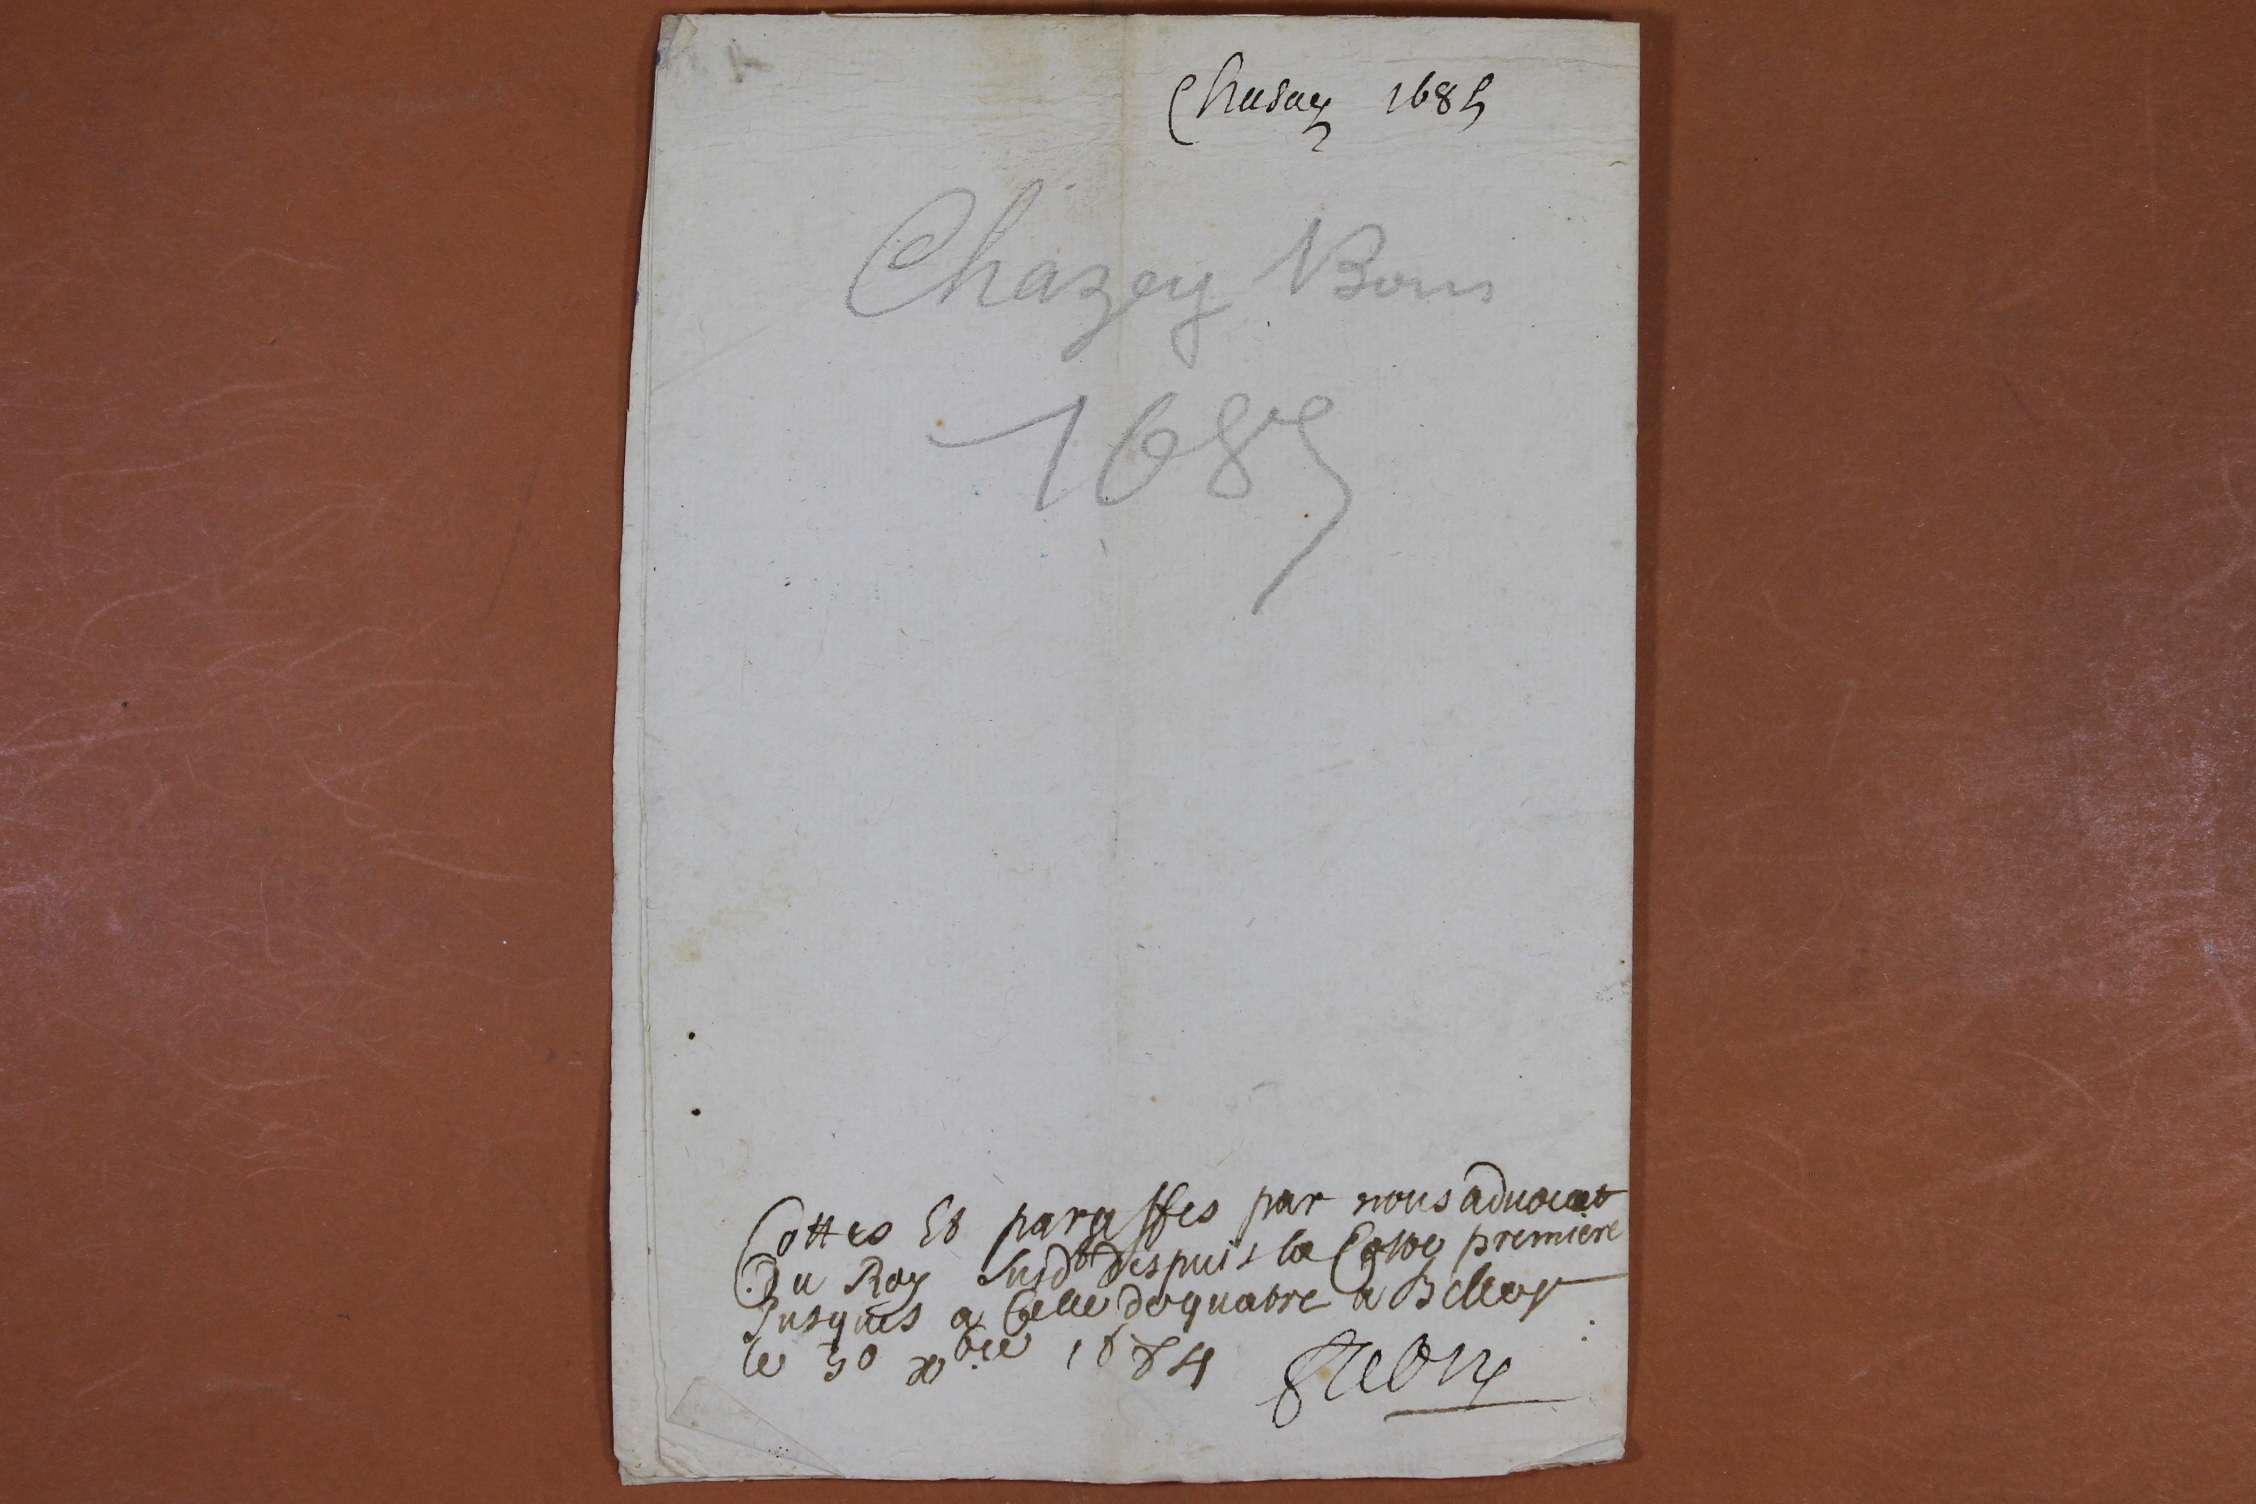 Chasay 1685
Chazey Bons
1685
Cottes Et paraffes par nous advocat
Du Roy susdt despuis la Cotte premiere
Jusques a Celle de quatre a Belley
le 30 xbre 1684